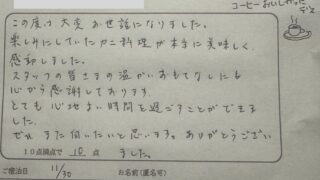 コーヒーおいしかった
デス
この度は大変お世話になりました。
楽しみにしていたカニ料理が本当に美味しく、
感動しました。
スタッフの皆さまの温かいおもてなしにも
心から感謝しております。
とても心地よい時間を過ごすことができま
した。
ぜひまた伺いたいと思います。ありがとうござい
10点満点で 10 点 ました。
ご宿泊日 11/30 お名前(匿名可)